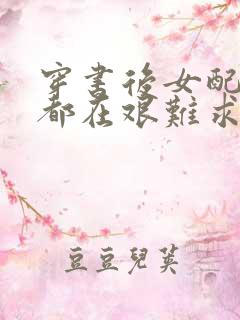 穿書後女配
都在艰難求
豆豆兒英